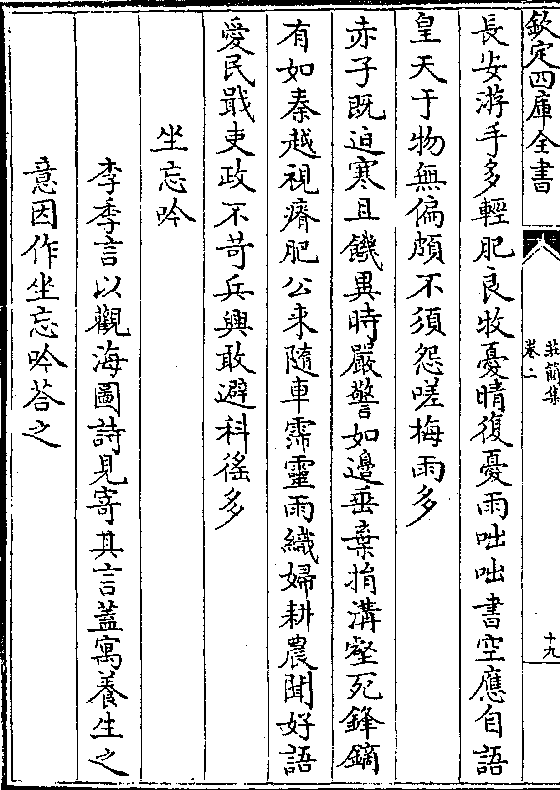 欽定四庫全書
莊簡集
卷二
十九
長安游手多輕肥良牧憂晴復憂雨咄咄書空應自語
皇天于物無偏頗不須怨嗟梅雨多
赤子既迫寒且饑異時嚴警如邊垂棄捐溝壑死鋒鏑
有如秦越視瘠肥公来隨車霈靈雨織婦耕農聞好語
愛民戢吏政不苛兵興敢避科徭多
坐忘吟
李季言以觀海圖詩見寄其言蓋寓養生之
意因作坐忘吟荅之